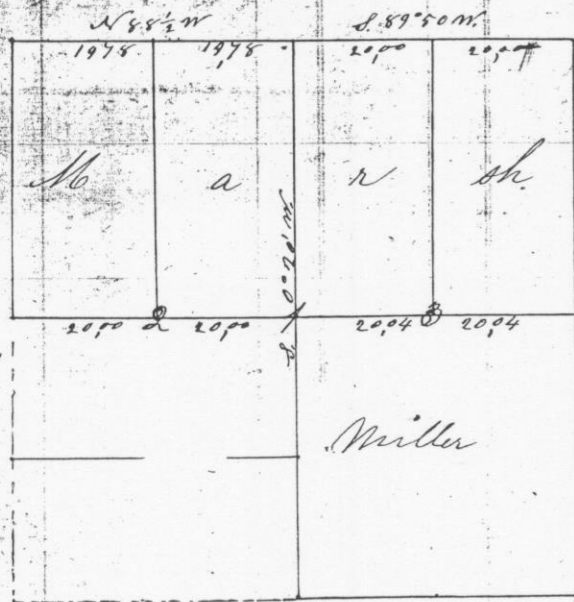 N 88½ W S. 89°50 W.
1978 1978 20,00 20,00
M a r sh
20,00 2 20,00 1 20,04 3 20,04
Miller